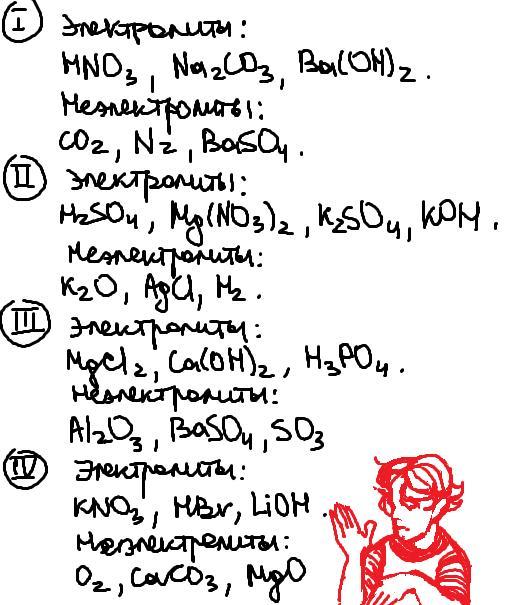 I Электролиты:
HNO3, Na2CO3, Ba(OH)2.
Неэлектролиты:
CO2, N2, BaSO4.
II Электролиты:
H2SO4, Mg(NO3)2, K2SO4, KOH.
Неэлектролиты:
K2O, AgCl, H2.
III Электролиты:
MgCl2, Ca(OH)2, H3PO4.
Неэлектролиты:
Al2O3, BaSO4, SO3
IV Электролиты:
KNO3, HBr, LiOH.
Неэлектролиты:
O2, CaCO3, MgO